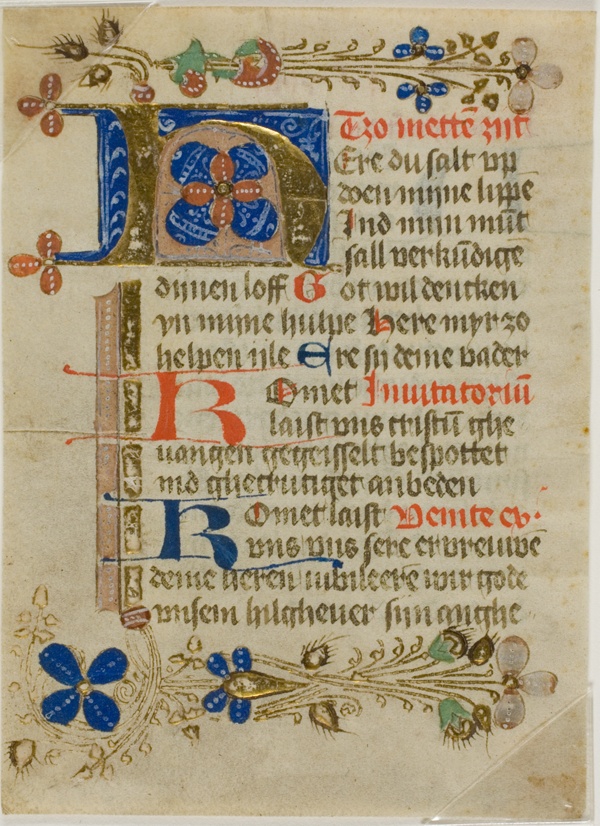 Tzo mettē zijt
HEre du salt vp
doen mijne lippe
Ind mijn mūt
sall verkūdige
dijnen loff Got wil dencken
yn mijne hulpe Here myr zo
helpen ijle Ere sij deme vader
KOmet Inuitatoriū
laist vns cristū ghe
uangen gegeisselt bespottet
ind ghecrutiget anbeden
KOmet laist Venite ex.
vns vns sere ervreuwē
deme heren iubileerē wir gode
vnsem